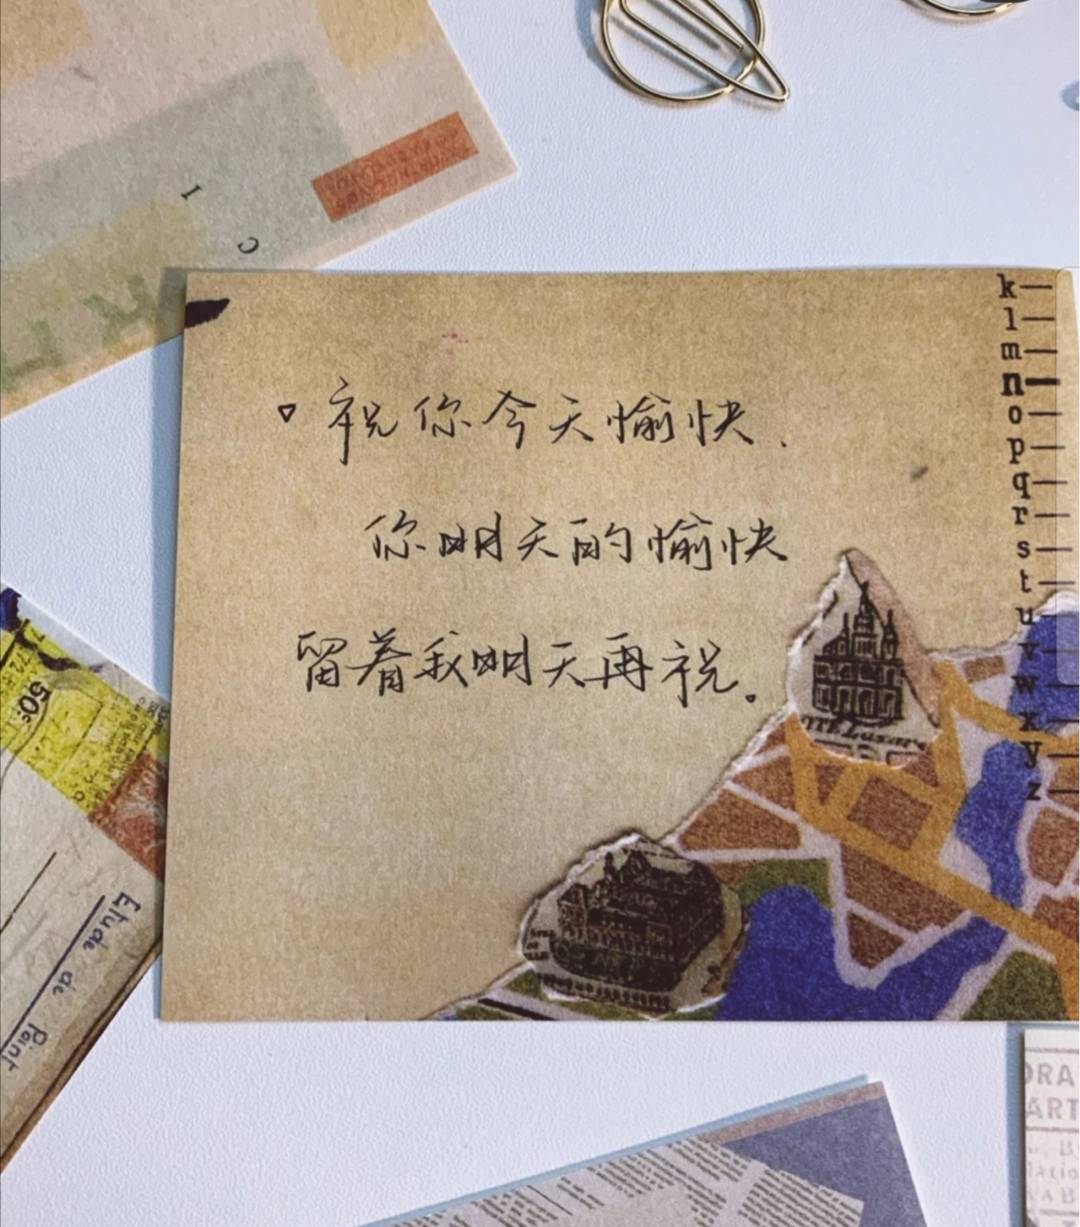 祝你今天愉快、
你明天的愉快
留着我明天再祝。
k
l
m
n
o
p
q
r
s
t
u
v
w
x
y
z
I
C
50c
Etude de Point
ORA
ART